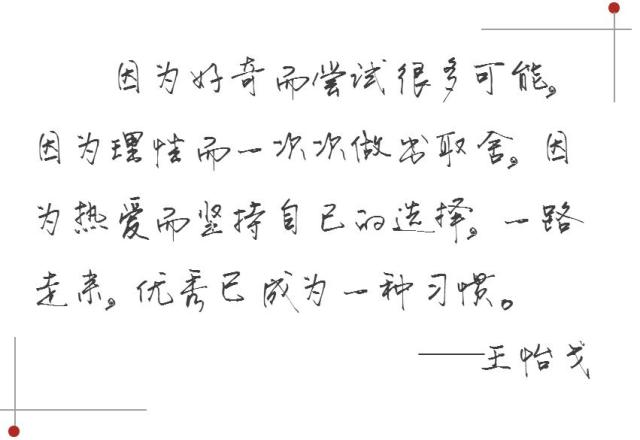 因为好奇而尝试很多可能，
因为理性而一次次做出取舍，因
为热爱而坚持自己的选择，一路
走来，优秀已成为一种习惯。
——王怡戈